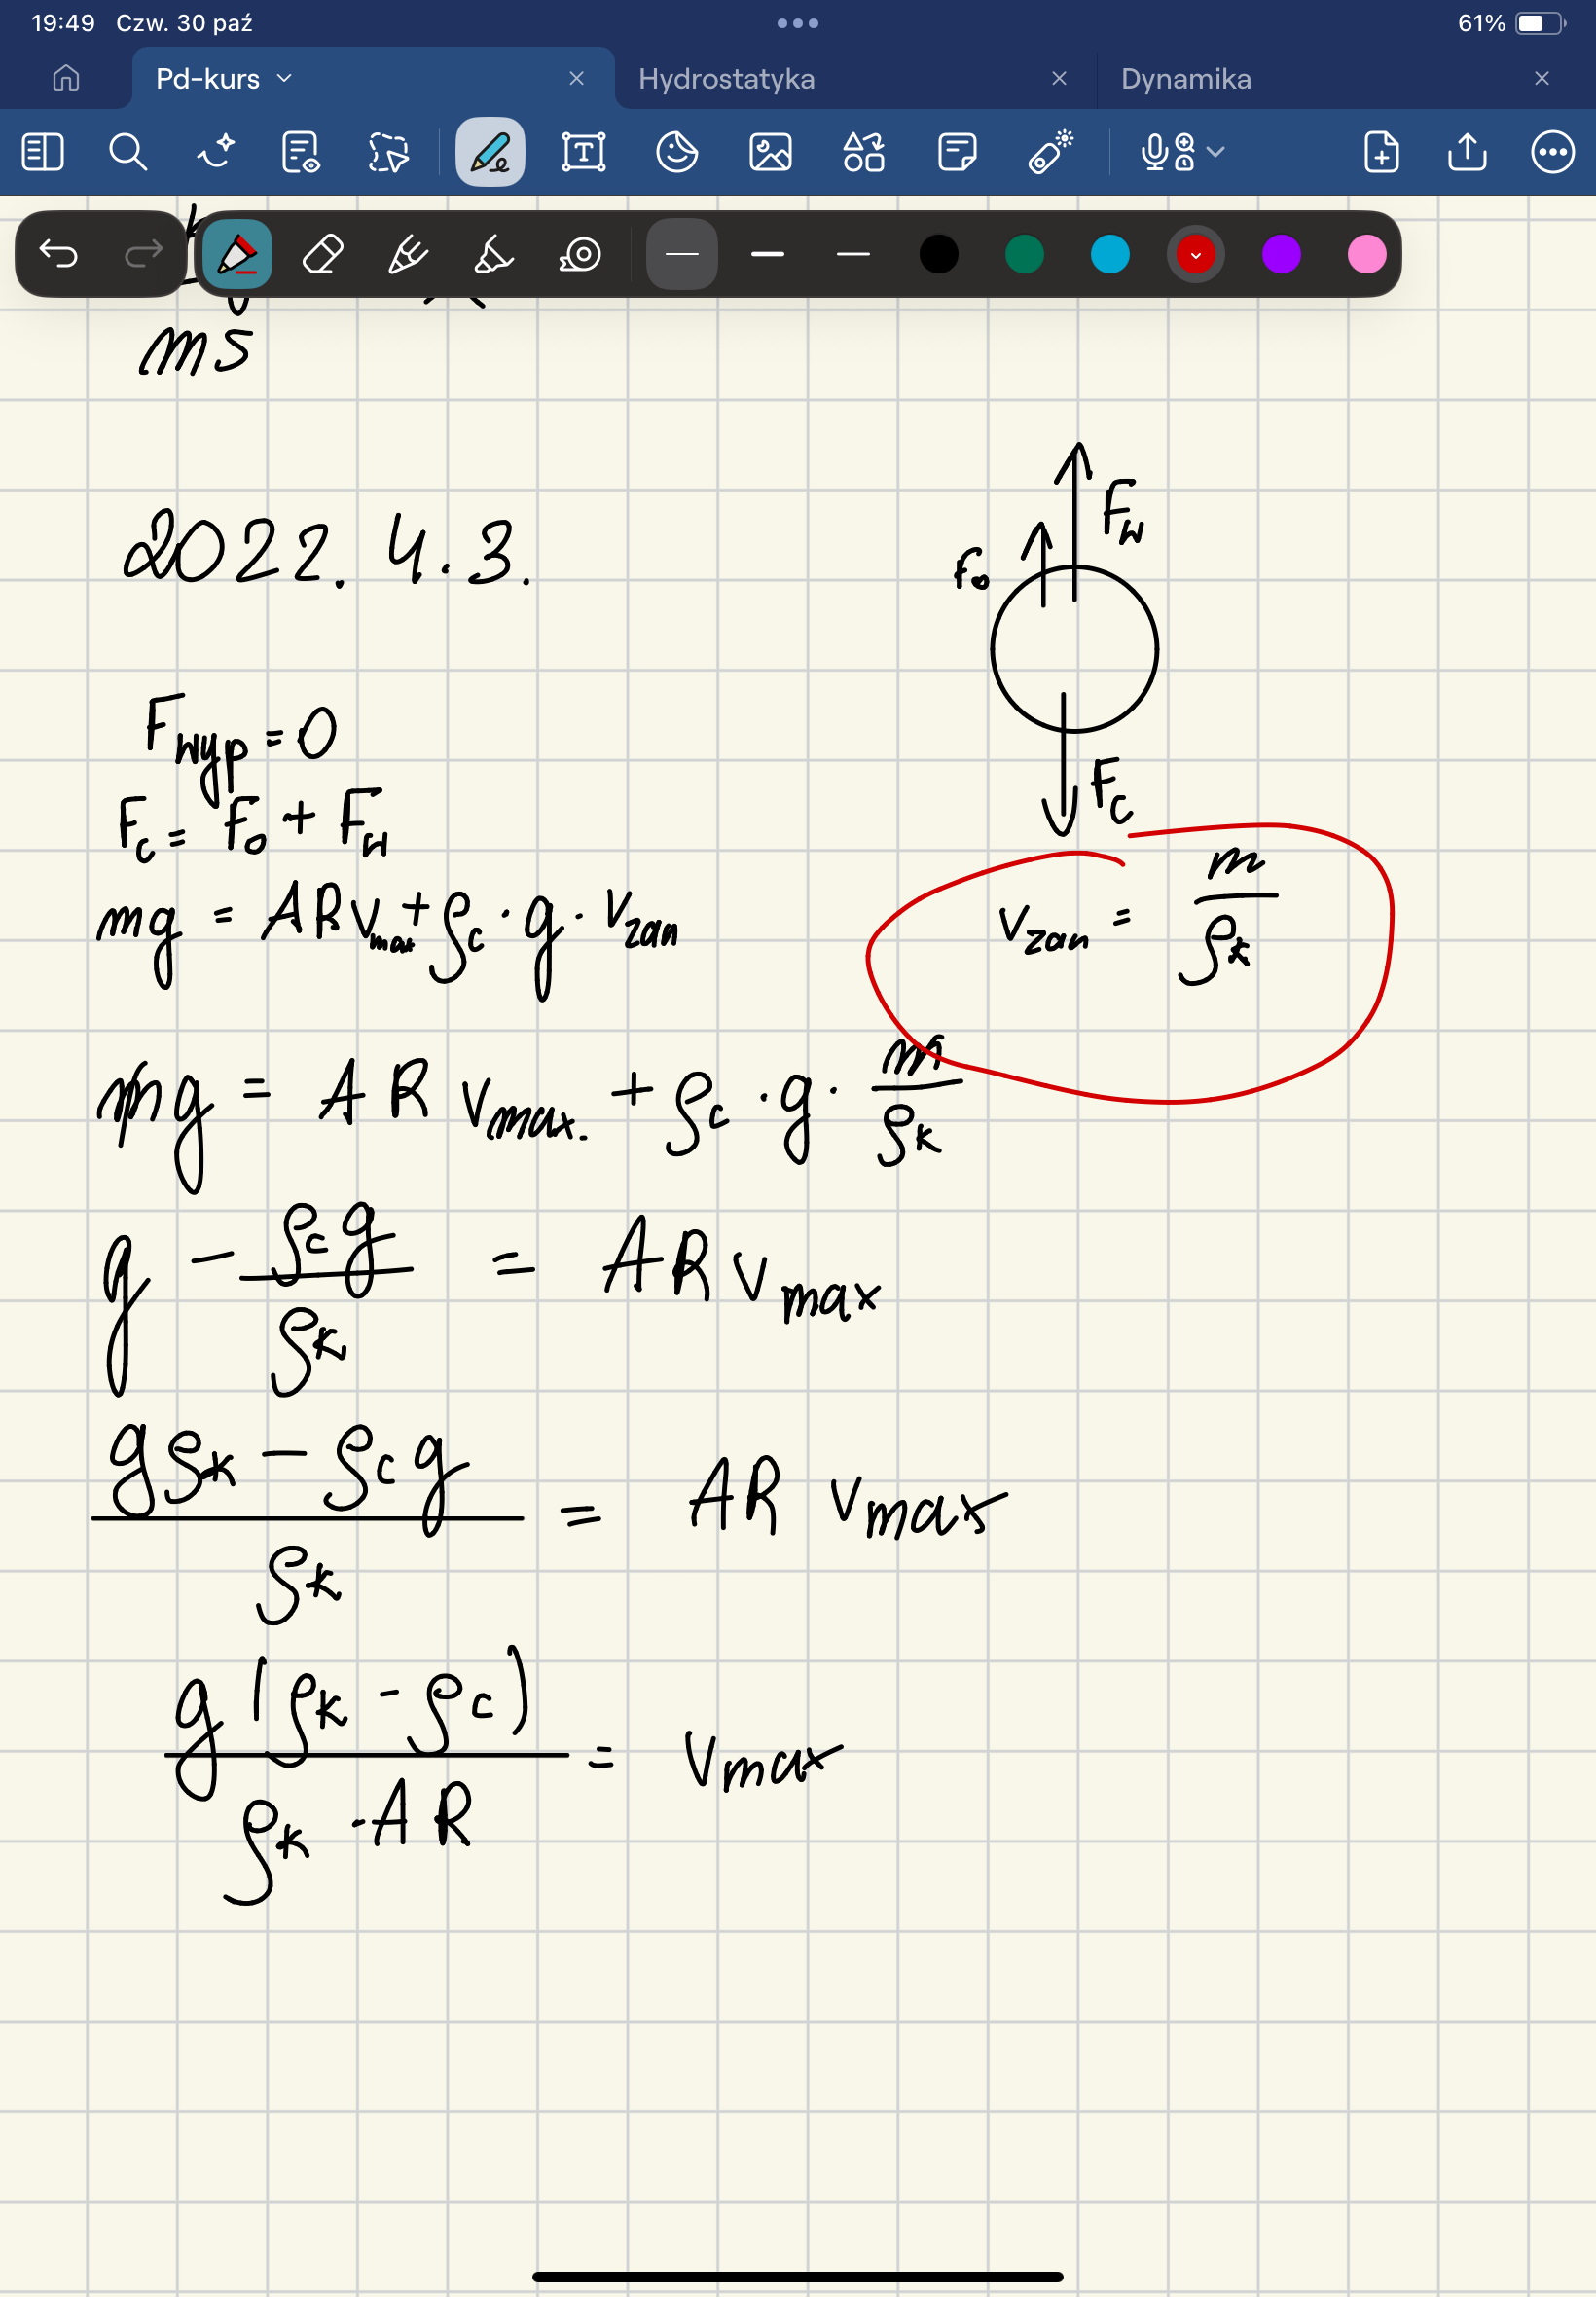 19:49 Czw. 30 paź 61%
Pd-kurs Hydrostatyka Dynamika
ms
2022. 4.3.
F_w
F_o
F_wyp = 0
F_c = F_o + F_w
F_c
mg = ARv_max + ρ_c · g · V_zan
V_zan = m/ρ_k
mg = AR v_max. + ρ_c · g · m/ρ_k
g - ρ_c g/ρ_k = AR v_max
(gρ_k - ρ_c g)/ρ_k = AR v_max
g(ρ_k - ρ_c)/(ρ_k · AR) = v_max